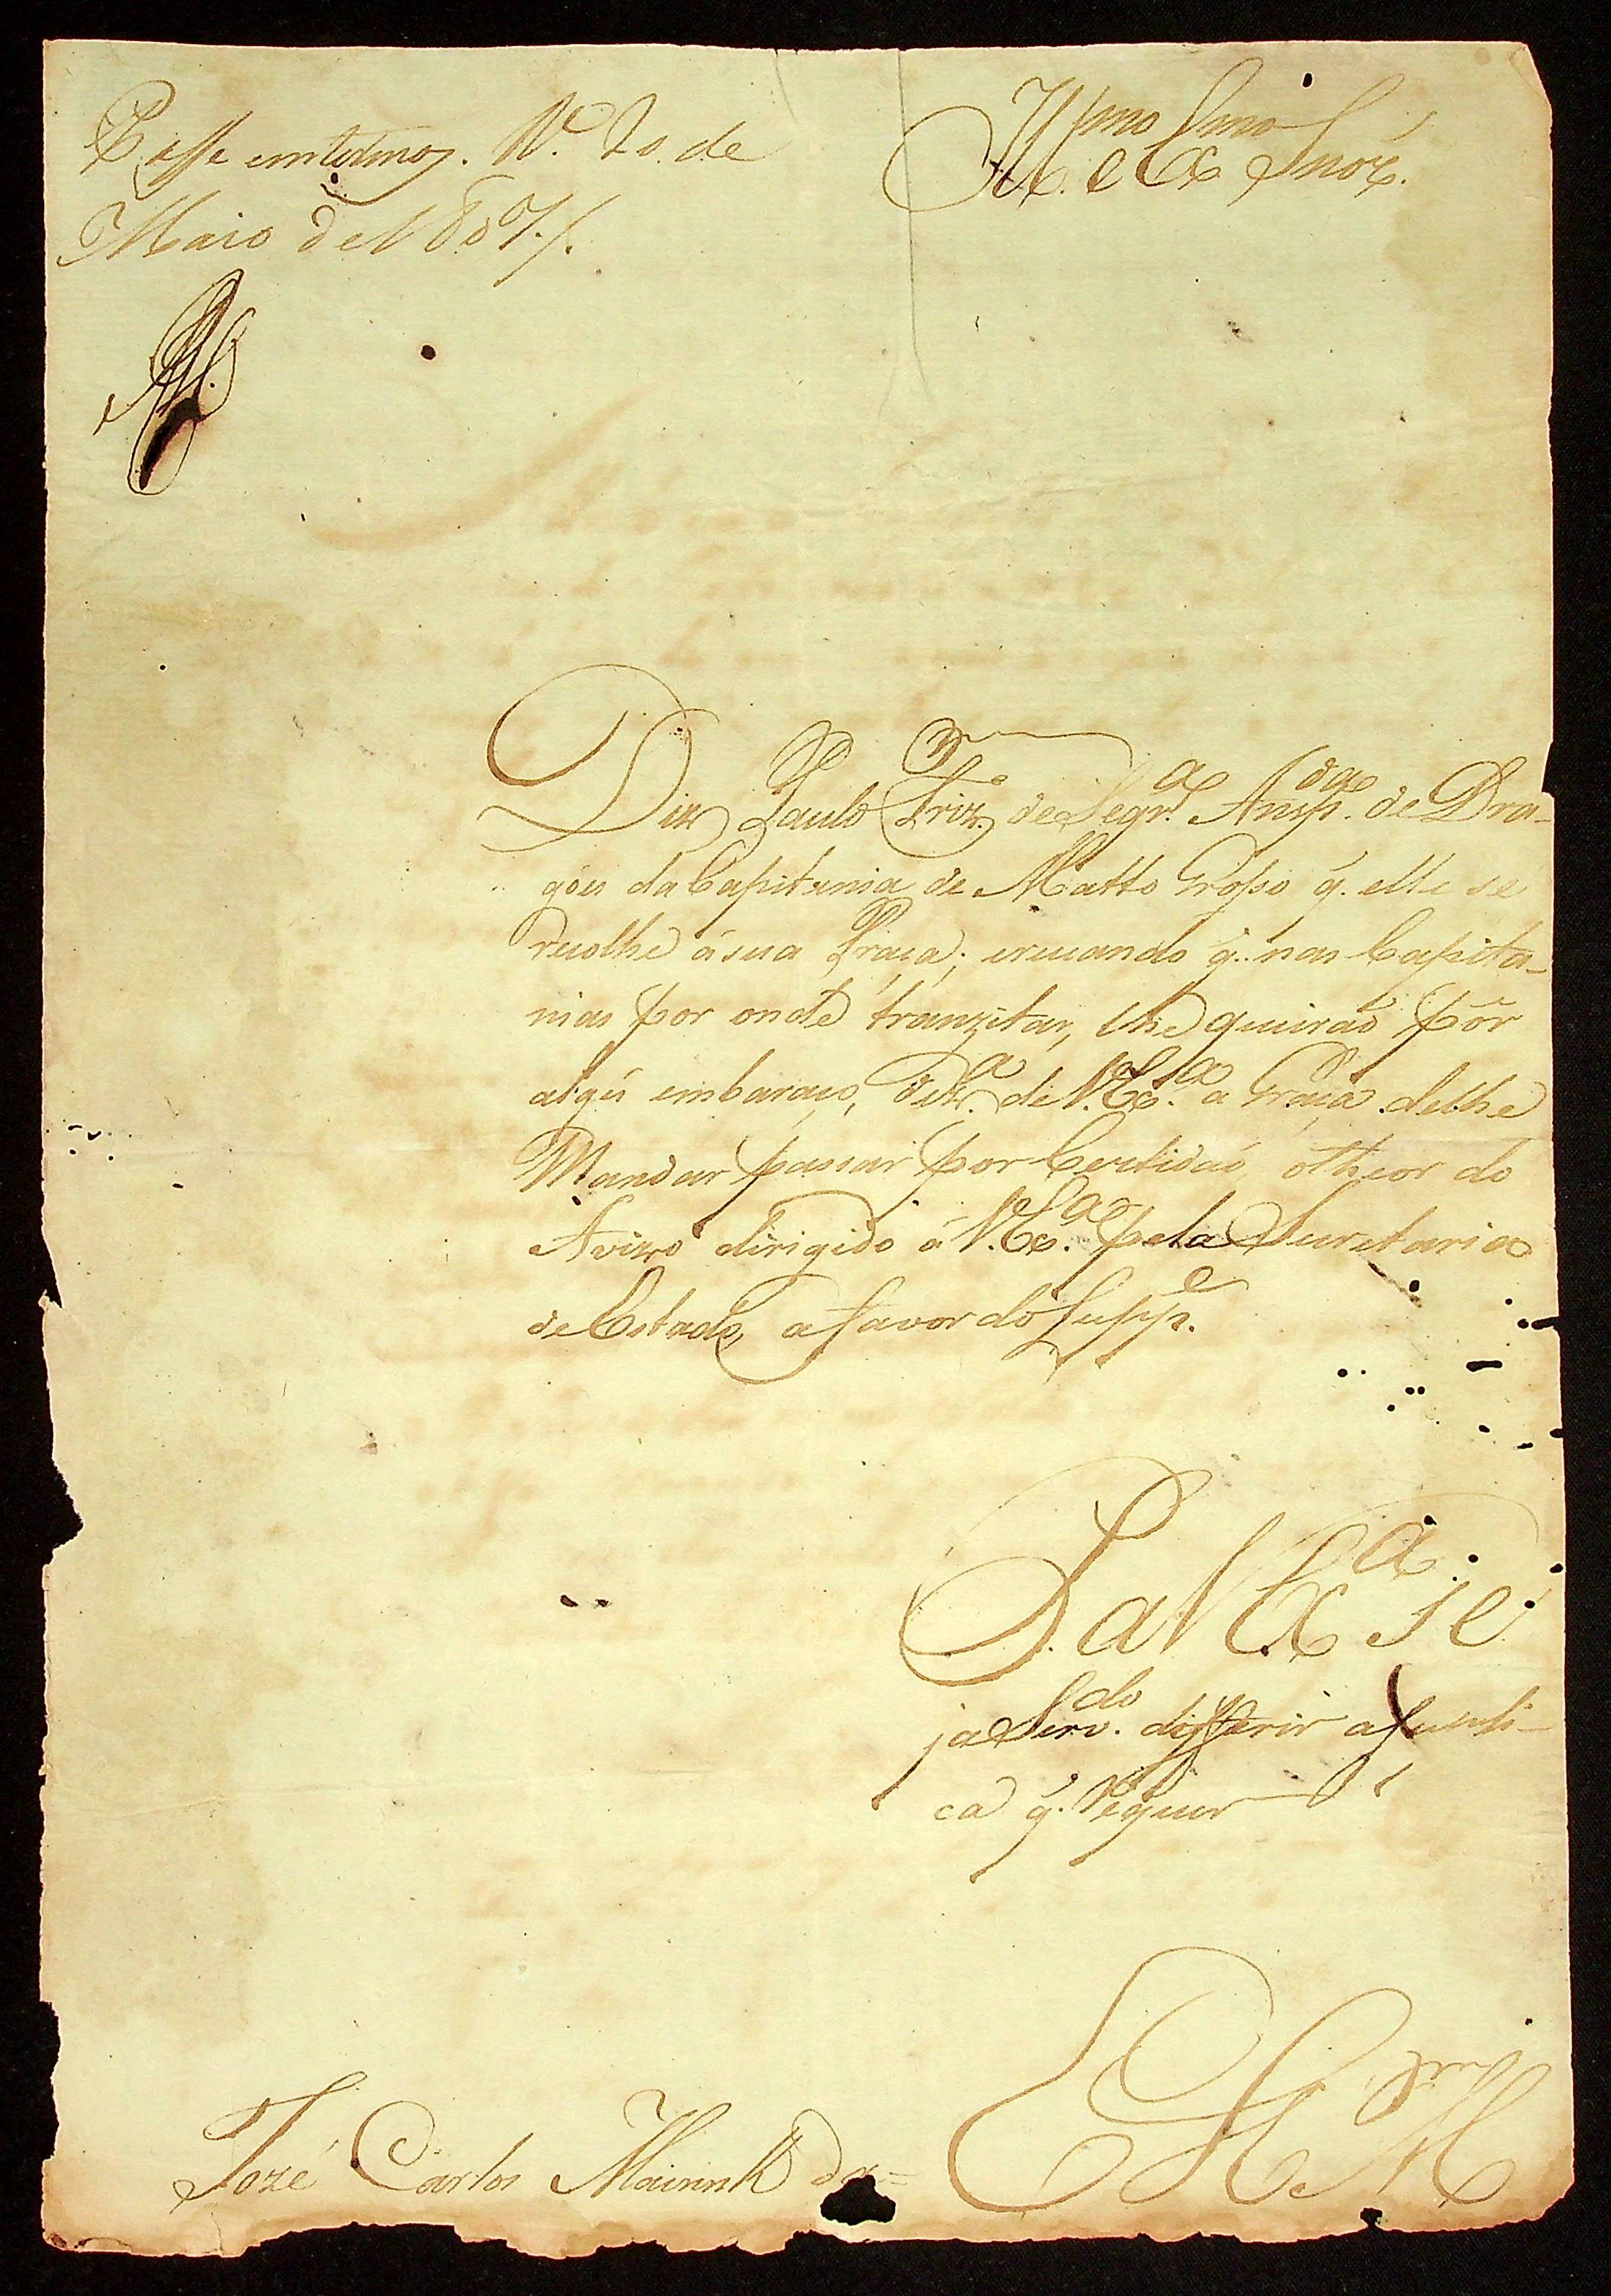 Passe em termos. V.ª 20. de
Maio de 1807./.
Ill.mo e Ex.mo Snõr.
Diz Paulo Friz. de Segr.a Ansp.da de Dra-
gões da Capitania de Matto Grosso q. elle se
recolhe á sua Praça; e receando q. nas Capita-
nias por onde tranzitar, lhe queirão pôr
algũ embaraço, P.de de V. Ex.a a Graça de lhe
Mandar passar por Certidão, o theor do
Avizo dirigido á V. Ex.a pela Secretaria
de Estado, a favor do Supp.e
P. a V Ex.a se
ja Serv.do differir a supli-
ca q. requer
E R M.ce
Jozé Carlos Mairink da